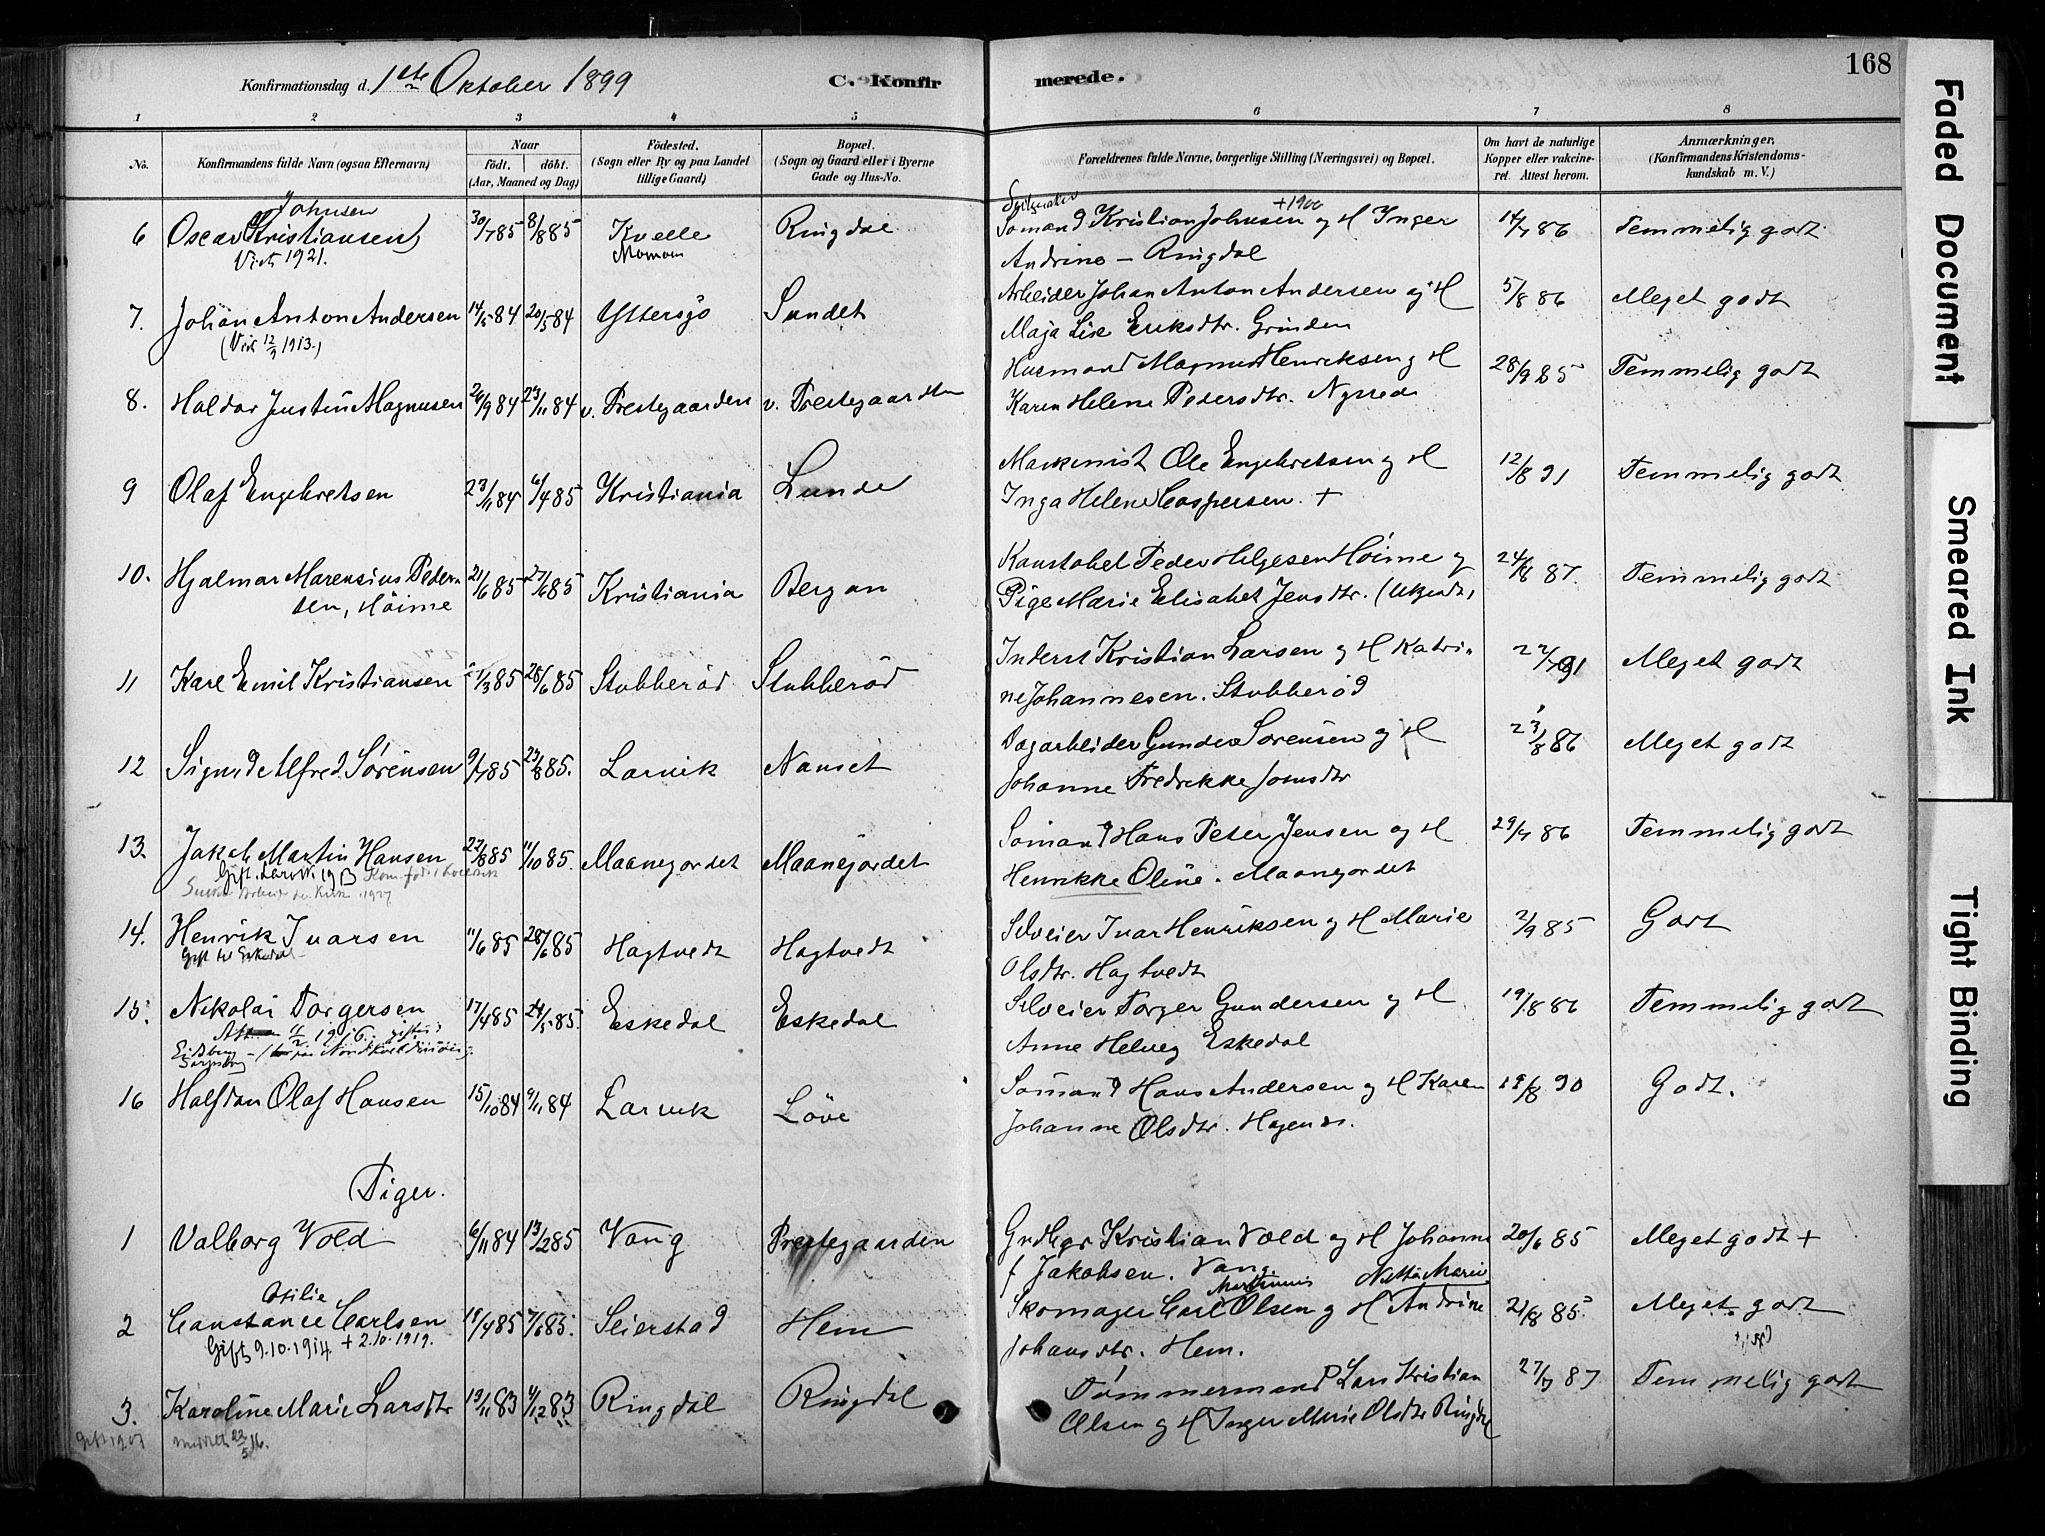 168
Konfirmationsdag d. 1ste Oktober 1899 C. Konfirmerede.
1 2 3 4 5 6 7 8
No. Konfirmandens fulde Navn (ogsaa Efternavn) Naar født. døbt. (Aar, Maaned og Dag) Fødested. (Sogn eller By og paa Landet tillige Gaard) Bopæl. (Sogn og Gaard eller i Byerne Gade og Hus-No. Forældrenes fulde Navne, borgerlige Stilling (Næringsvei) og Bopæl. Om havt de naturlige Kopper eller vaccineret. Attest herom. Anmærkninger. (Konfirmandens Kristendomskundskab m. V.)
Johnsen
6 Oscar Kristiansen 30/7 85 8/8 85 Kvelle Ringdal Sømand Kristian Johnsen +1900 og H Inger 14/7 86 Temmelig godt
Viet 1921. Andrine – Ringdal
7. Johan Anton Andersen 14/5 84 20/5 84 Yttersø Sundet Arbeider Johan Anton Andersen og H 5/8 86 Meget godt
(Viet 12/9 1913.) Maja Lise Eriksdtr. Grinden
8. Haldor Justin Magnusen 26/9 84 23/11 84 v. Prestegaarden v. Prestegaarden Husmand Magnus Henriksen og H 28/9 85 Temmelig godt
Karen Helene Pedersdtr.
9 Olaf Engebretsen 23/11 84 6/4 85 Kristiania Lunde Maskinist Ole Engebretsen og H 12/8 91 Temmelig godt
Inga Helene Caspersen. +
10. Hjalmar Marensius Pedersen, Höime 21/6 85 27/6 85 Kristiania Bergan Konstabel Peder Helgesen Höime og 24/8 87. Temmelig godt
Pige Marie Elisabet Jensdtr. (Ukjendt)
11 Karl Emil Kristiansen /3 85 28/6 85 Stubberød Stubberød Inderst Kristian Larsen og H Katri- 22/7 91 Meget godt
ne Johannesen. Stubberød
12 Sigurd Alfred Sørensen 9/7 85 23/8 85. Larvik Nanset Dagarbeider Gunder Sørensen og H 23/8 86 Meget godt
Johanne Fredrikke Jonsdtr
13. Jakob Martin Hansen 22/8 85 11/10 85. Maanejordet Maanejordet Sömand Hans Peter Jensen og H 29/7 86 Temmelig godt
Henrikke Oline. Maanejordet
14. Henrik Ivarsen 11/6 85 28/6 85 Hagtvedt Hagtvedt Selveier Ivar Henriksen og H Marie 2/9 85 Godt
Gift til Eskedal Olsdtr. Hagtvedt
15. Nikolai Torgersen 17/4 85 24/5 85. Eskedal Eskedal Selveier Torger Gundersen og H 19/8 86 Temmelig godt
11/2 1916. gift i Anne Helvig Eskedal
Eidsberg
16 Halfdan Olaf Hansen 15/10 84 9/11 84 Larvik Löve Sömand Hans Andersen og H Karen 18/8 90 Godt.
Johanne Olsdtr.
Piger.
1 Valborg Vold 6/11 84 13/2 85 Vang Prestegaarden Grdbgr Kristian Vold og H Johanne 20/6 85 Meget godt +
f Jakobsen. Vang.
Otilie Netta Marie
2 Constance Carlsen 18/4 85 7/6 85. Seierstad Hem Skomager Carl Olsen og H Andrine 21/8 85. Meget godt
Gift 9.10.1914 + 2.10.1919. Johansdtr. Hem.
3. Karoline Marie Larsdtr 13/11 83 9/12 83 Ringdal Ringdal Tømmermand Lars Kristian 27/7 87 Temmelig godt
Gift 1907 Olsen og H Inger Marie Olsdtr Ringdal
Faded Document
Smeared Ink
Tight Binding